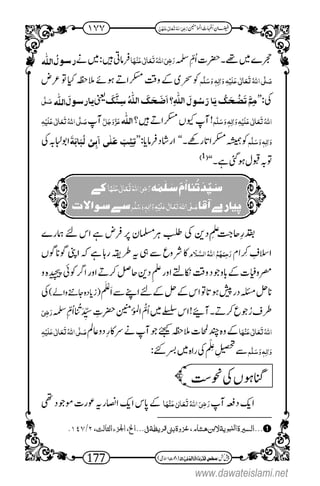 فیضانِ اُمّہاتُ المؤمنین رَضِیَ اللهُ تَعَالٰی عَنْهُنَّ ۱۷۷
حجرے میں تھے۔ حضرت اُمِّ سلمہ رَضِیَ اللهُ تَعَالٰی عَنْهَا فرماتی ہیں: میں نے رسولُ اللّٰه
صَلَّی اللهُ تَعَالٰی عَلَیْهِ وَاٰلِهٖ وَسَلَّم کو سحری کے وقت مسکراتے ہوئے ملاحظہ کیا تو عرض
کی: ”مِمَّ تَضْحَكُ یَا رَسُوْلَ اللهِ؟ اَضْحَكَ اللهُ سِنَّكَ یعنی یارسولَ اللّٰه صَلَّی
اللهُ تَعَالٰی عَلَیْهِ وَاٰلِهٖ وَسَلَّم! آپ کیوں مسکراتے ہیں؟ اللّٰه عَزَّوَجَلَّ آپ صَلَّی اللهُ تَعَالٰی عَلَیْهِ
وَاٰلِهٖ وَسَلَّم کو ہمیشہ مسکراتا رکھے۔“ ارشاد فرمایا: ”تِیْبَ عَلٰی اَبِیْ لُبَابَةَ ابولبابہ کی
توبہ قبول ہو گئی ہے۔“(1)
سیّدتُنا اُمِّ سلمہ رَضِیَ اللهُ تَعَالٰی عَنْهَا کے
پیارے آقا صَلَّی اللهُ تَعَالٰی عَلَیْهِ وَاٰلِهٖ وَسَلَّم سے سوالات
بقدرِ حاجت علمِ دین کی طلب ہر مسلمان پر فرض ہے اس لئے ہمارے
اسلافِ کرام رَحِمَهُمُ اللهُ السَّلَام کا شروع سے ہی یہ طریقہ رہا ہے کہ اپنی گوناگوں
مصروفیات کے باوجود وقت نکالتے اور علمِ دین حاصل کرتے اور اگر کوئی پیچیدہ و
ناحل مسئلہ درپیش ہوتا تو اس کے حل کے لئے اپنے سے اَعلَم (زیادہ جاننے والے) کی
طرف رجوع کرتے۔ آئیے! اس سلسلے میں اُمُّ المؤمنین حضرتِ سیّدتُنا اُمِّ سلمہ رَضِیَ
اللهُ تَعَالٰی عَنْهَا کے وہ چند لمحات ملاحظہ کیجئے جو آپ نے سرکارِ دو عالم صَلَّی اللهُ تَعَالٰی عَلَیْهِ
وَاٰلِهٖ وَسَلَّم سے تحصیلِ علم کی راہ میں بسر کئے:
گناہوں کی نحوست
ایک دفعہ آپ رَضِیَ اللهُ تَعَالٰی عَنْهَا کے پاس ایک انصاریہ عورت موجود تھی
1 ...السیرة النبویة لابن هشام، غزوة بنی قریظة فی...الخ، الجزء الثالث، ۲/ ۱۴۷.
177
www.dawateislami.net